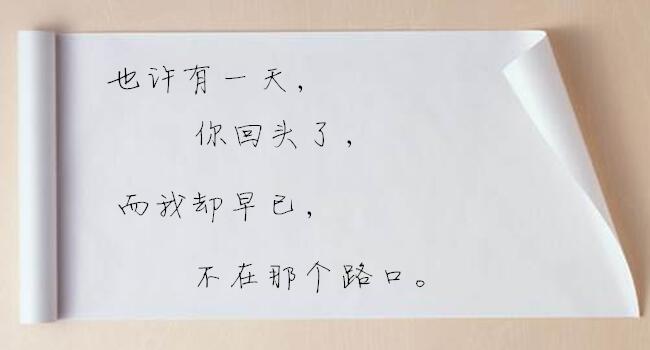 也许有一天，
你回头了，
而我却早已，
不在那个路口。